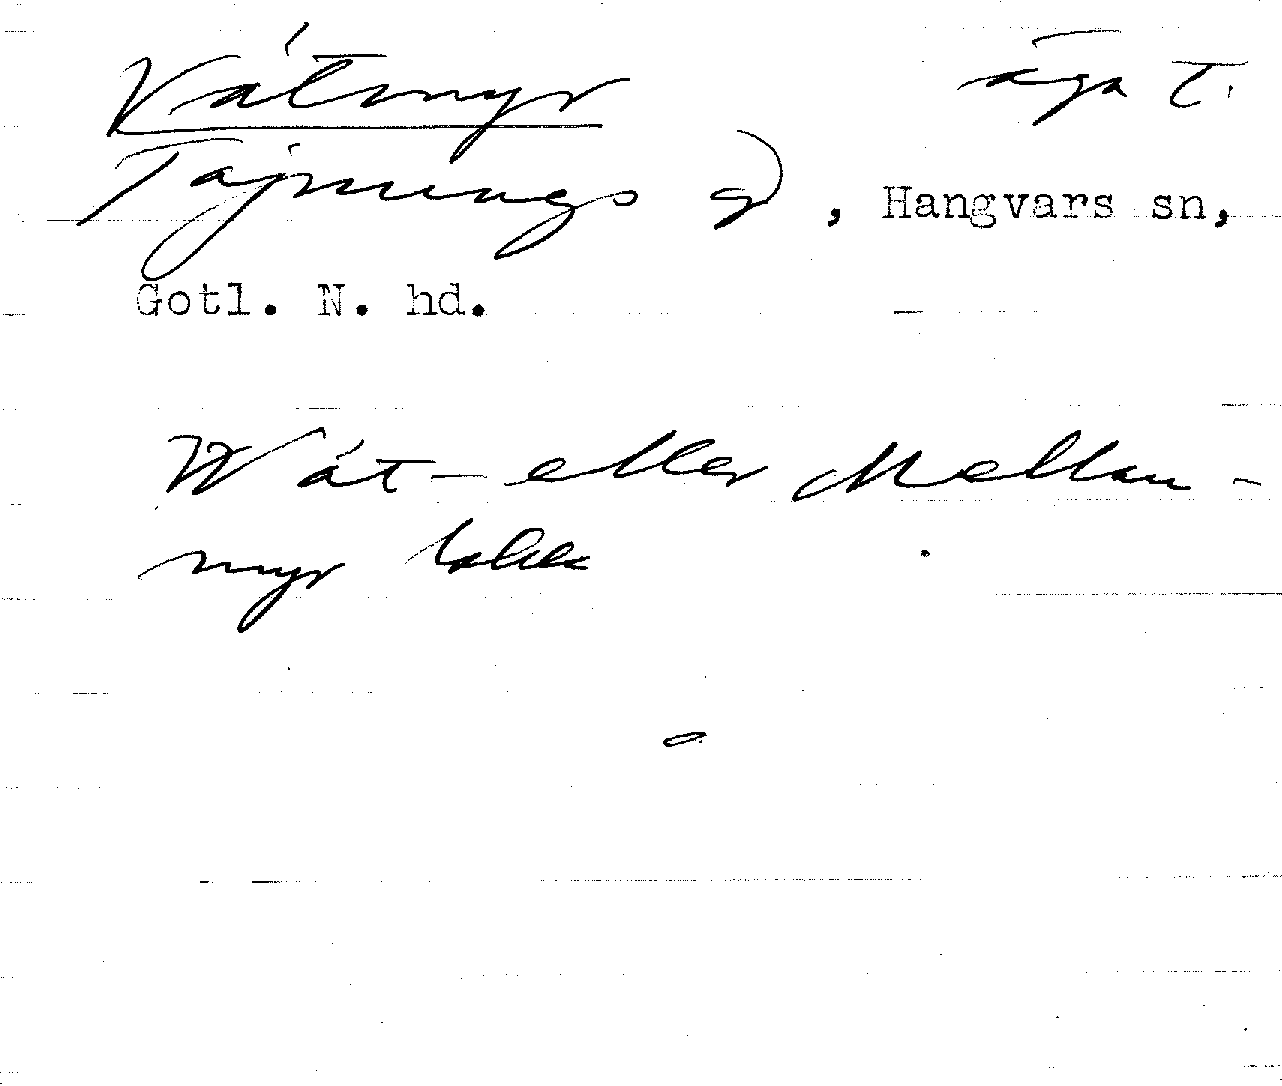 Våtmyr äga t.
Tajnungs gd, Hangvars sn,
Gotl. N. hd.
Wåt- eller Mellan-
myr kallad